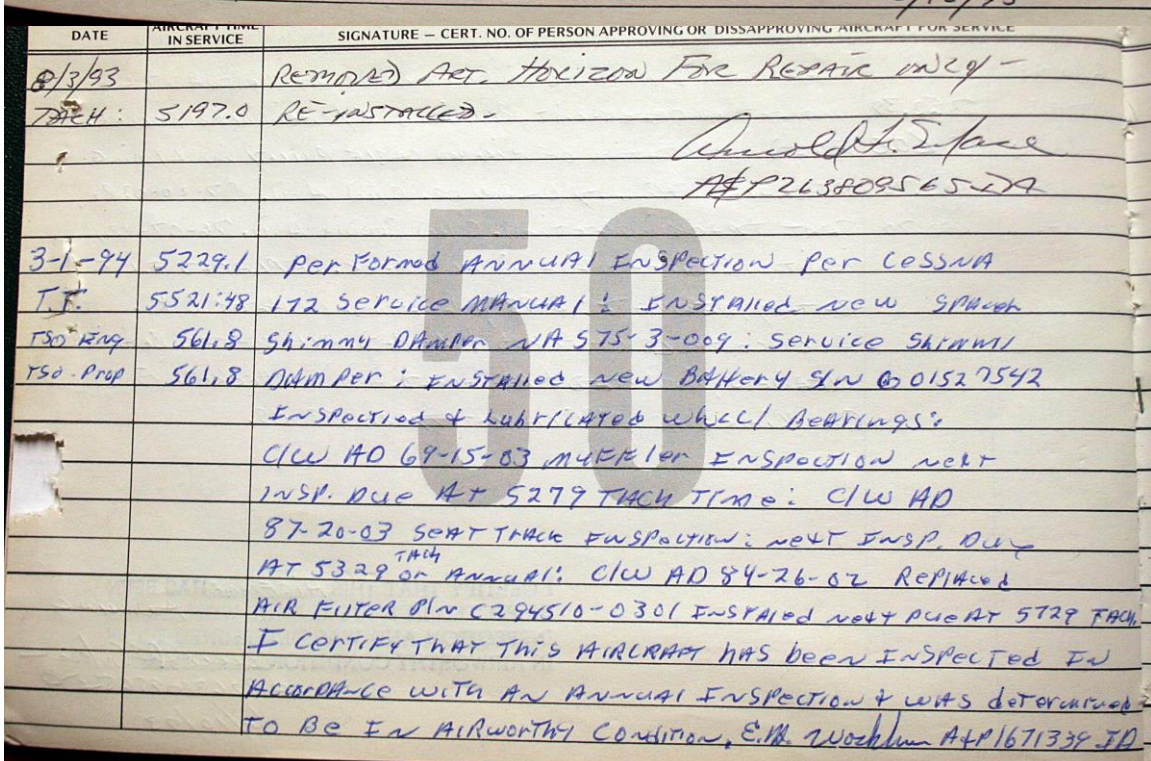 DATE AIRCRAFT TIME IN SERVICE SIGNATURE — CERT. NO. OF PERSON APPROVING OR DISAPPROVING AIRCRAFT FOR SERVICE
8/3/93 REMOVED ART. HORIZON FOR REPAIR ONLY -
TACH: 5197.0 RE-INSTALLED.
A&P263809565IA
50
3-1-94 5229.1 Performed ANNUAL INSPECTION Per CESSNA
T.T. 5521:48 172 Service MANUAL: INSTAlled New
TSO Eng 561.8 Shimmy DAmper NAS75-3-009: Service Shimmy
TSO-Prop 561.8 DAmper: INSTAlled New BAttery S/N G01527542
INSPected & LubricATed wheel BeArings:
C/W AD 69-15-03 Muffler INSPection Next
INSP. Due At 5279 TACH Time: C/W AD
87-20-03 SEAT TRACK INSPection: Next INSP. Due
AT 5329 TACH or ANNUAL: C/W AD 84-26-02 REPlAced
AIR FILTER P/N C294510-0301 INSTAled Next Due AT 5729 TACH.
I CERTIFY THAT This AIRCRAFT hAS been INSPECTED IN
AccorDANce WITH AN ANNUAL INSPECTION & WAS determined
TO BE IN AIRworthy Condition. E.M. A&P1671339 IA